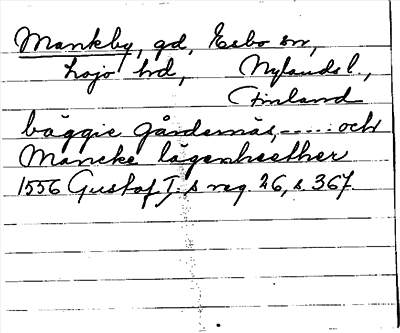 Mankby, gd, Esbo sn,
Lojo hd, Nylands l.,
Finland
bäggie gårdernäs, ..... och
Mancke lägenheether
1556 Gustaf I:s reg. 26, s. 367.